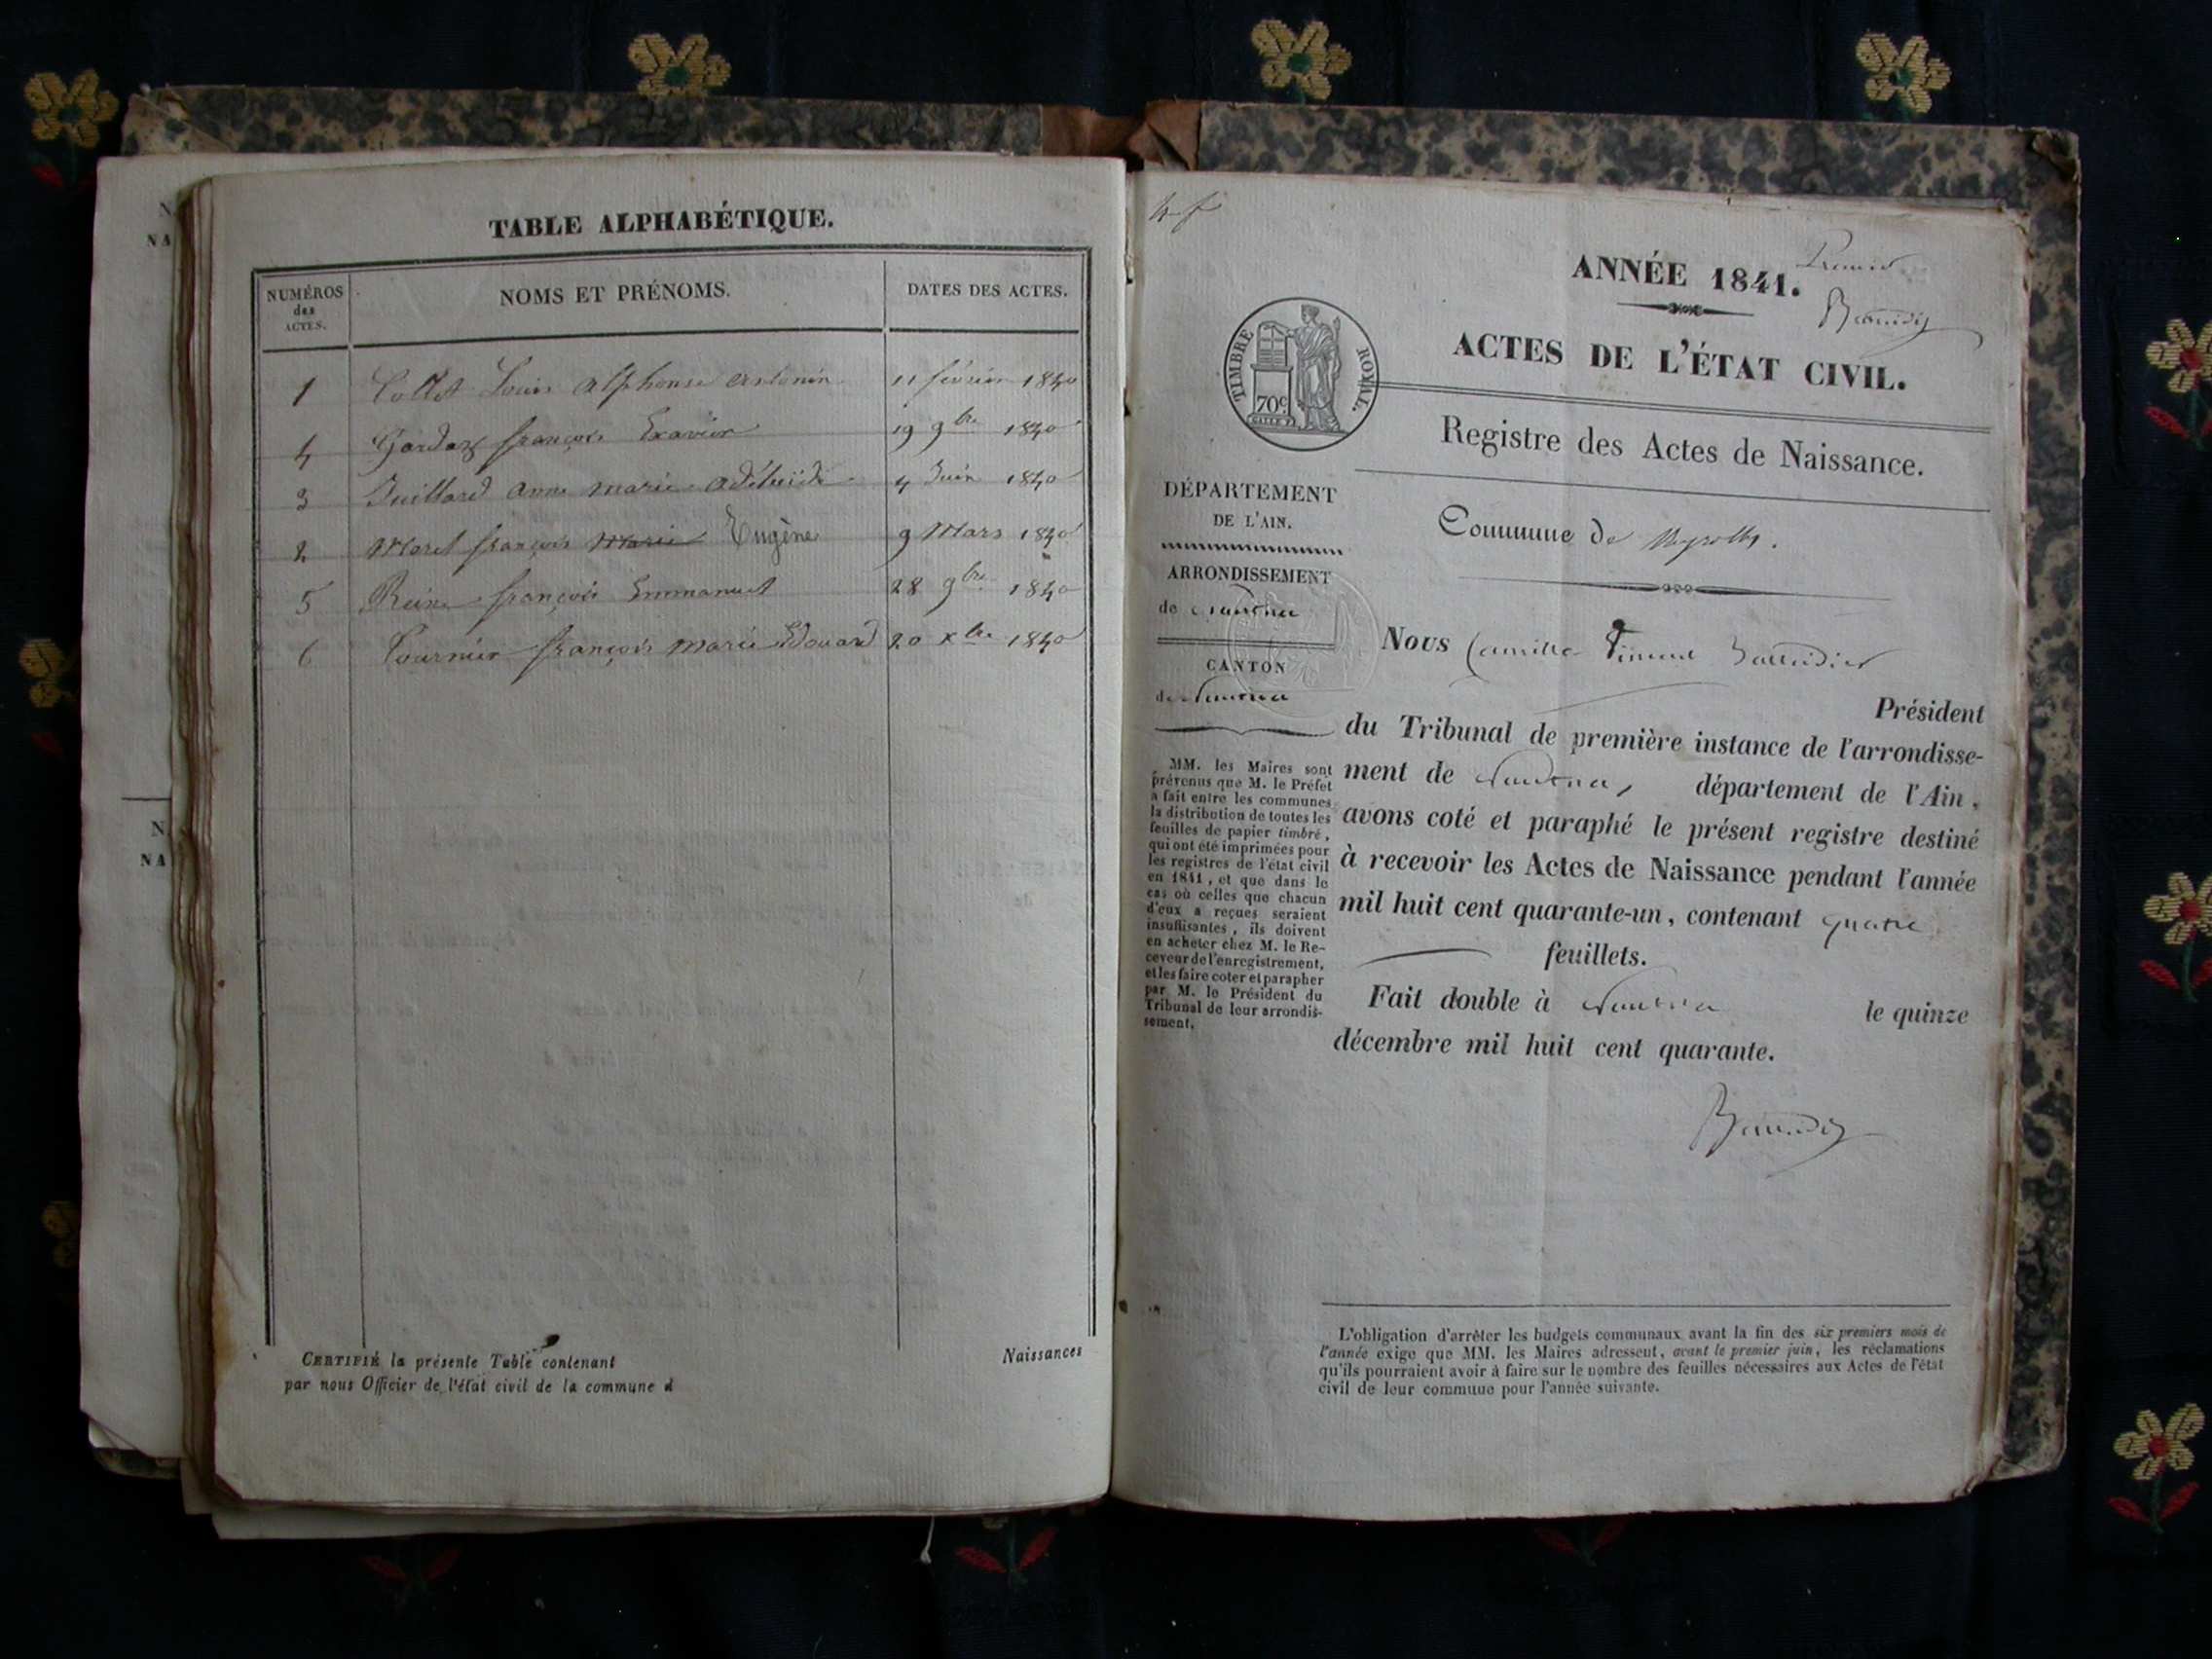 TABLE ALPHABÉTIQUE.
NUMÉROS des ACTES.
NOMS ET PRÉNOMS.
DATES DES ACTES.
1 Collet Louis Alphonse Antonin 11 février 1840
4 françois Exavier 19 9bre 1840
3 Juillard anne marie adélaïde 4 Juin 1840
2 Moret françois Marie Eugène 9 Mars 1840
5 Reine françois Emmanuel 28 9bre 1840
6 Tournier françois marie Edouard 20 xbre 1840
CERTIFIÉ la présente Table contenant
par nous Officier de l'état civil de la commune d
Naissances
ANNÉE 1841.
Premier
ACTES DE L'ÉTAT CIVIL.
TIMBRE ROYAL.
70c
Registre des Actes de Naissance.
DÉPARTEMENT
DE L'AIN.
Commune de
ARRONDISSEMENT
de Nantua
CANTON
de Nantua
Nous Camille
Président
du Tribunal de première instance de l'arrondisse-
ment de Nantua, département de l'Ain,
avons coté et paraphé le présent registre destiné
à recevoir les Actes de Naissance pendant l'année
mil huit cent quarante-un, contenant quatre
feuillets.
Fait double à Nantua le quinze
décembre mil huit cent quarante.
MM. les Maires sont
prévenus que M. le Préfet
a fait entre les communes
la distribution de toutes les
feuilles de papier timbré,
qui ont été imprimées pour
les registres de l'état civil
en 1841, et que dans le
cas où celles que chacun
d'eux a reçues seraient
insuffisantes, ils doivent
en acheter chez M. le Re-
ceveur de l'enregistrement,
et les faire coter et parapher
par M. le Président du
Tribunal de leur arrondis-
sement.
L'obligation d'arrêter les budgets communaux avant la fin des six premiers mois de
l'année exige que MM. les Maires adressent, avant le premier juin, les réclamations
qu'ils pourraient avoir à faire sur le nombre des feuilles nécessaires aux Actes de l'état
civil de leur commune pour l'année suivante.